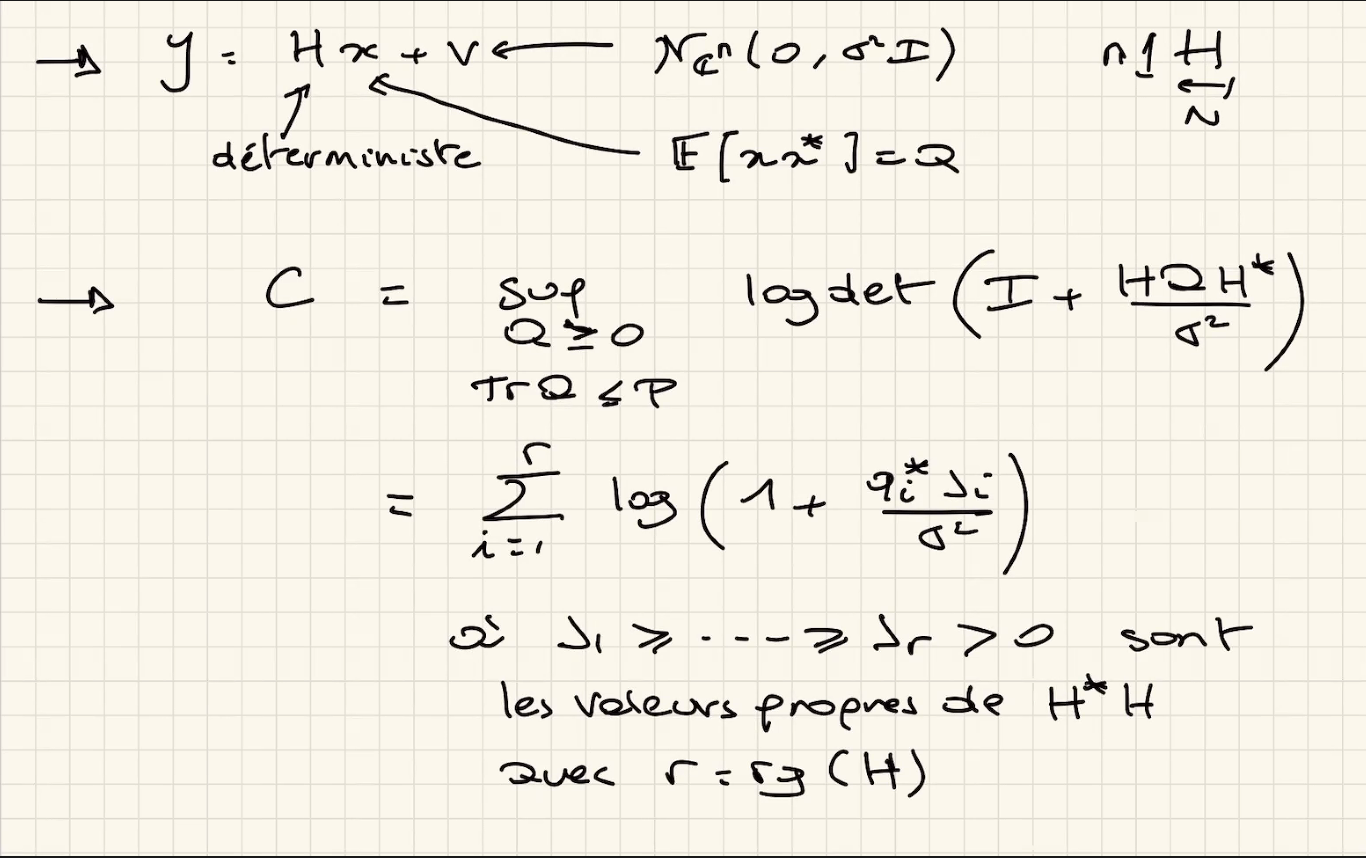 → y = Hx + v ← N_{ℂ^n}(0, σ²I) n ↕ H
↔ N
déterministe E[xx*] = Q
→ C = sup log det (I + HQH*/σ²)
Q ≥ 0
Tr Q ≤ P
= ∑_{i=1}^{r} log (1 + q_i* λ_i/σ²)
où λ_1 ≥ ---- ≥ λ_r > 0 sont
les valeurs propres de H*H
avec r = rg(H)